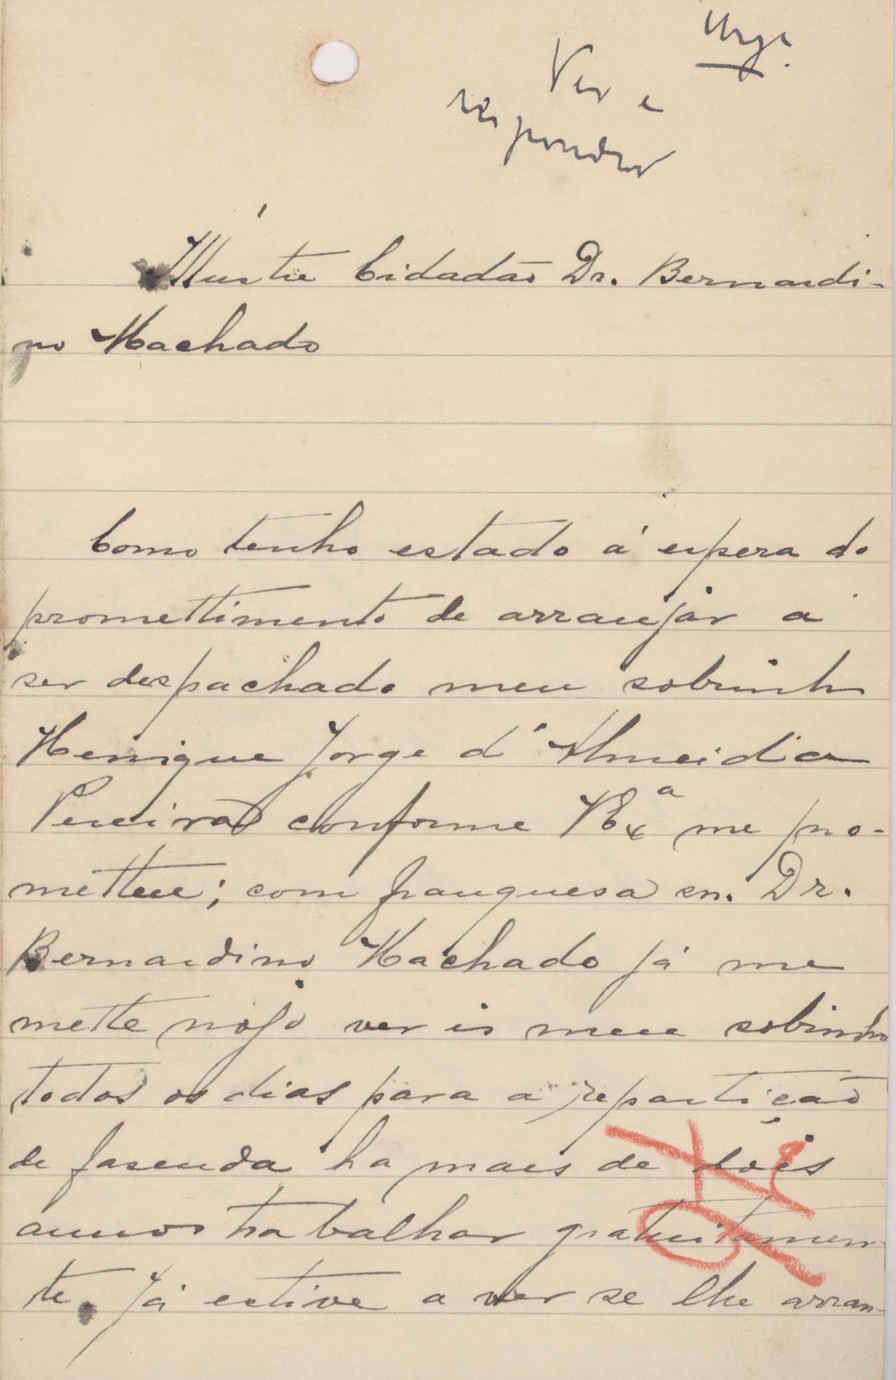 Urge.
Ver e
responder
Illustre Cidadão Dr. Bernardi-
no Machado
Como tenho estado á espera do
promettimento de arranjár a
ser despachado meu sobrinho
Henrique Jorge d'Almeida
Pereira conforme V Exª me pro-
metteu; com franquesa sn. Dr.
Bernardino Machado já me
mette nojo ver ir meu sobrinho
todos os dias para a repartição
de fasenda ha mais de dois
annos trabalhar gratuitamen-
te. Já estive a ver se lhe arran-